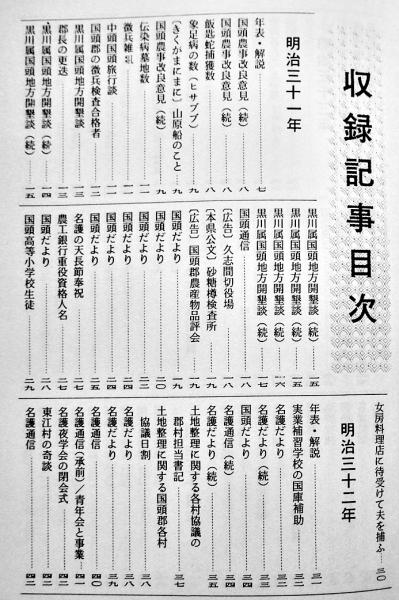 収録記事目次
明治三十一年
年表・解説……七
国頭農事改良意見（続）……八
国頭農事改良意見（続）……八
飯匙蛇捕獲数……八
象足病の数（ヒサブブ）……九
（きくがまにまに）山原船のこと……九
国頭農事改良意見（続）……九
伝染病墓地数……一一
徴兵雑俎……一一
中頭国頭旅行談……一二
国頭郡の徴兵検査合格者……一二
黒川属国頭地方開墾談……一三
郡長の更迭……一三
黒川属国頭地方開墾談（続）……一四
黒川属国頭地方開墾談（続）……一五
黒川属国頭地方開墾談（続）……一五
黒川属国頭地方開墾談（続）……一五
黒川属国頭地方開墾談（続）……一六
黒川属国頭地方開墾談（続）……一七
国頭通信……一七
（広告）久志間切役場……一八
（本県公文）砂糖樽検査所……一九
（広告）国頭郡農産物品評会……一九
国頭だより……一九
国頭だより……二〇
国頭だより……二一
国頭だより……二三
国頭だより……二四
国頭だより……二五
名護の天長節奉祝……二七
農工銀行重役資格人名……二七
国頭だより……二八
国頭高等小学校生徒……二九
女房料理店に待受けて夫を捕ふ……三〇
明治三十二年
年表・解説……三一
実業補習学校の国庫補助……三二
名護だより……三二
名護だより（続）……三三
国頭だより……三四
名護通信（続）……三四
名護だより（続）……三五
土地整理に関する各村協議の
郡村担当書記……三七
土地整理に関する国頭郡各村
協議日割……三八
名護だより……三八
名護だより……三九
名護通信……四〇
名護通信（承前）／青年会と事業……四一
名護夜学会の閉会式……四二
東江村の奇談……四二
名護通信……四二